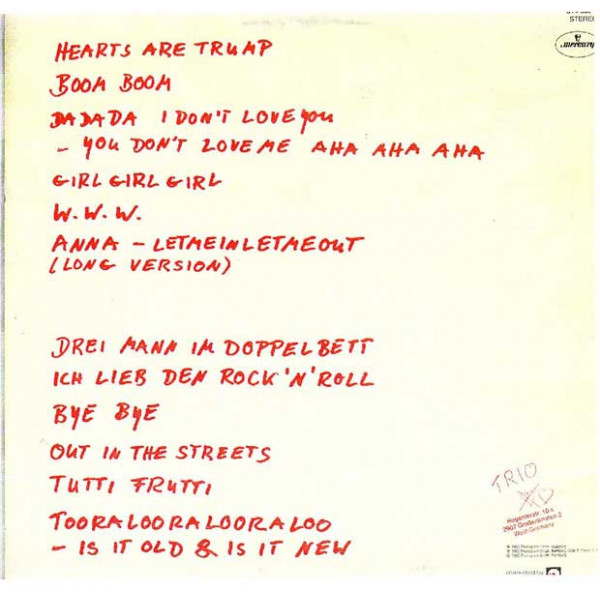 STEREO
mercury
HEARTS ARE TRUMP
BOOM BOOM
DADADA I DON'T LOVE YOU
- YOU DON'T LOVE ME AHA AHA AHA
GIRL GIRL GIRL
W.W.W.
ANNA - LETMEINLETMEOUT
(LONG VERSION)
DREI MANN IM DOPPELBETT
ICH LIEB DEN ROCK 'N' ROLL
BYE BYE
OUT IN THE STREETS
TUTTI FRUTTI
TOORALOORALOORALOO
- IS IT OLD & IS IT NEW
TRIO
Regenterstr. 10 a
2907 Großenkneten 2
West Germany
marketed by